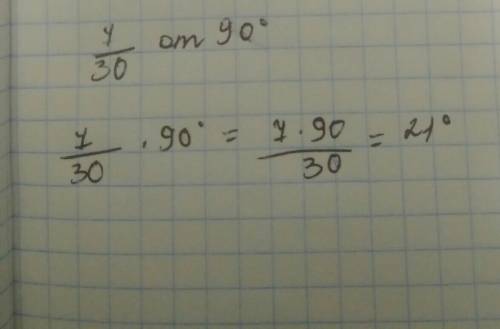 7/30 от 90°
7/30 · 90° = 7·90/30 = 21°